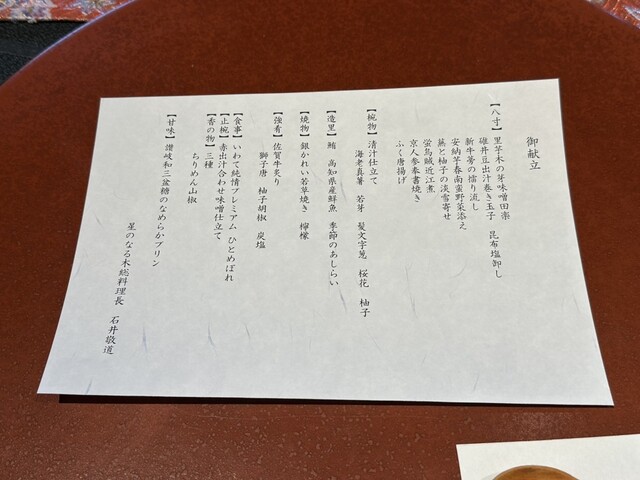 御献立
【八寸】里芋木の芽味噌田楽
碓井豆出汁巻き玉子 昆布塩卸し
新牛蒡の擂り流し
安納芋春南蛮野菜添え
蕪と柚子の淡雪寄せ
蛍烏賊近江煮
京人参奉書焼き
ふく唐揚げ
【椀物】清汁仕立て
海老真薯 若芽 髪文字葱 桜花 柚子
【造里】鮪 高知県産鮮魚 季節のあしらい
【焼物】銀かれい若草焼き 檸檬
【強肴】佐賀牛炙り
獅子唐 柚子胡椒 炭塩
【食事】いわて純情プレミアム ひとめぼれ
【止椀】赤出汁合わせ味噌仕立て
【香の物】三種
ちりめん山椒
【甘味】讃岐和三盆糖のなめらかプリン
星のなる木総料理長 石井敬道